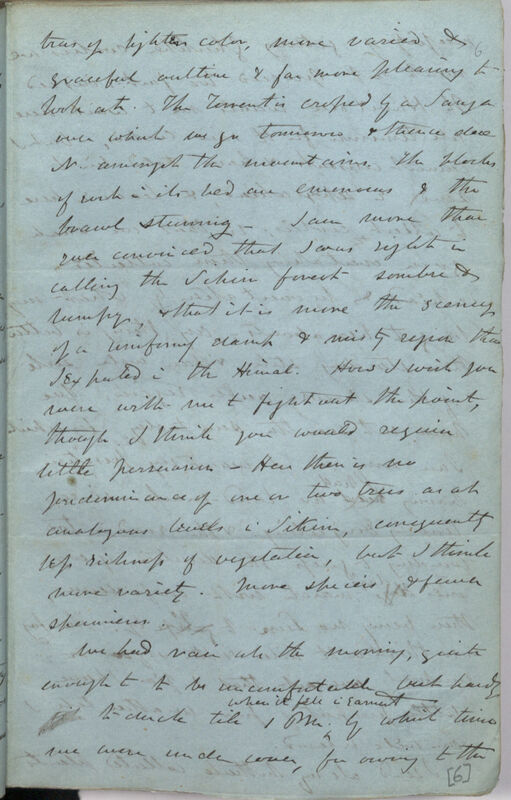 trees of lighter color, more varied & 6
graceful outline & far more pleasing to
look at. The Torrent is crossed by a Sanga
over which we go tomorrow & thence due
N. amongst the mountains. The blocks
of rock in its bed are enormous & the
brawl stunning – I am more than
ever convinced that I was right in
calling the Sikim forest sombre &
lumpy, & that it is more the scenery
of a uniformly dank & misty region than
I expected in the Himal. How I wish you
were with me to fight out the point,
though I think you would require
little persuasion – Here there is no
predominance of one or two trees as at
analogous levels in Sikim, consequently
less richness of vegetation, but I think
more variety. More species & fewer
specimens.
We had rain all the morning, quite
enough to be uncomfortable but hardly
when it fell in earnest
to drench till 1 PM. by which time
we were under cover, for owing to the
[6]